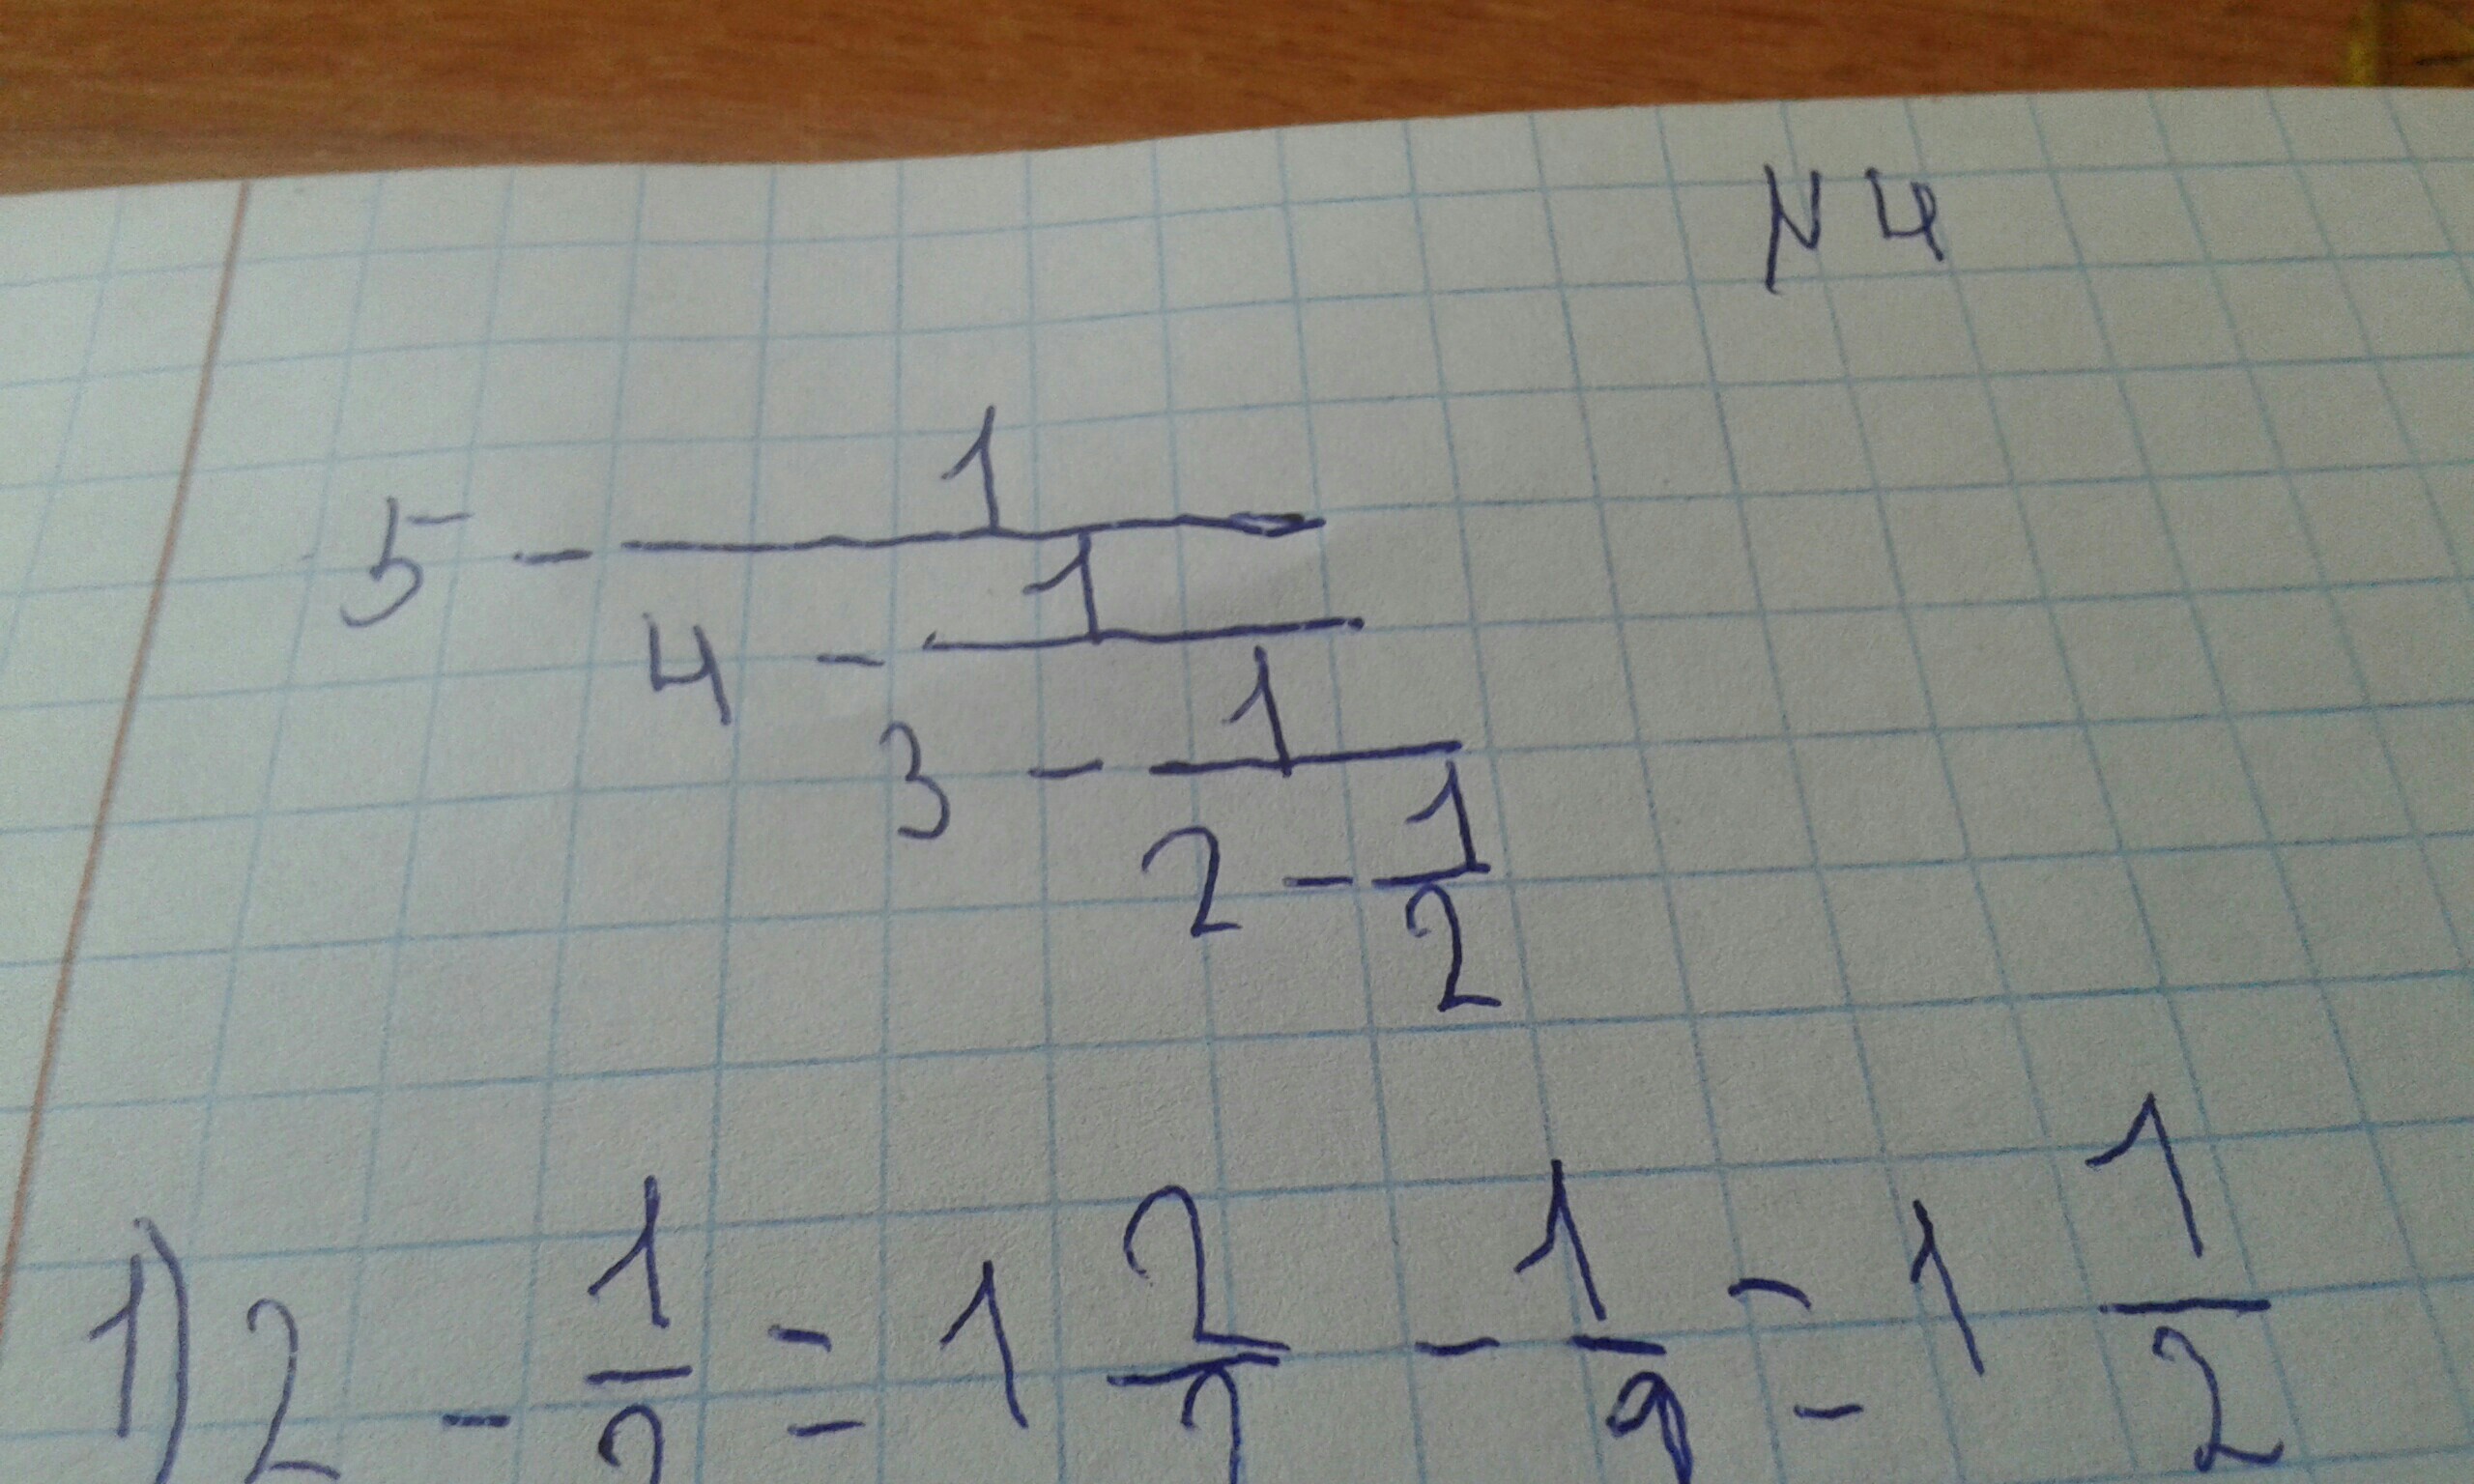 N 4
5 - 1
4 - 1
3 - 1
2 - 1/2
1) 2 - 1/2 = 1 2/2 - 1/2 = 1 1/2